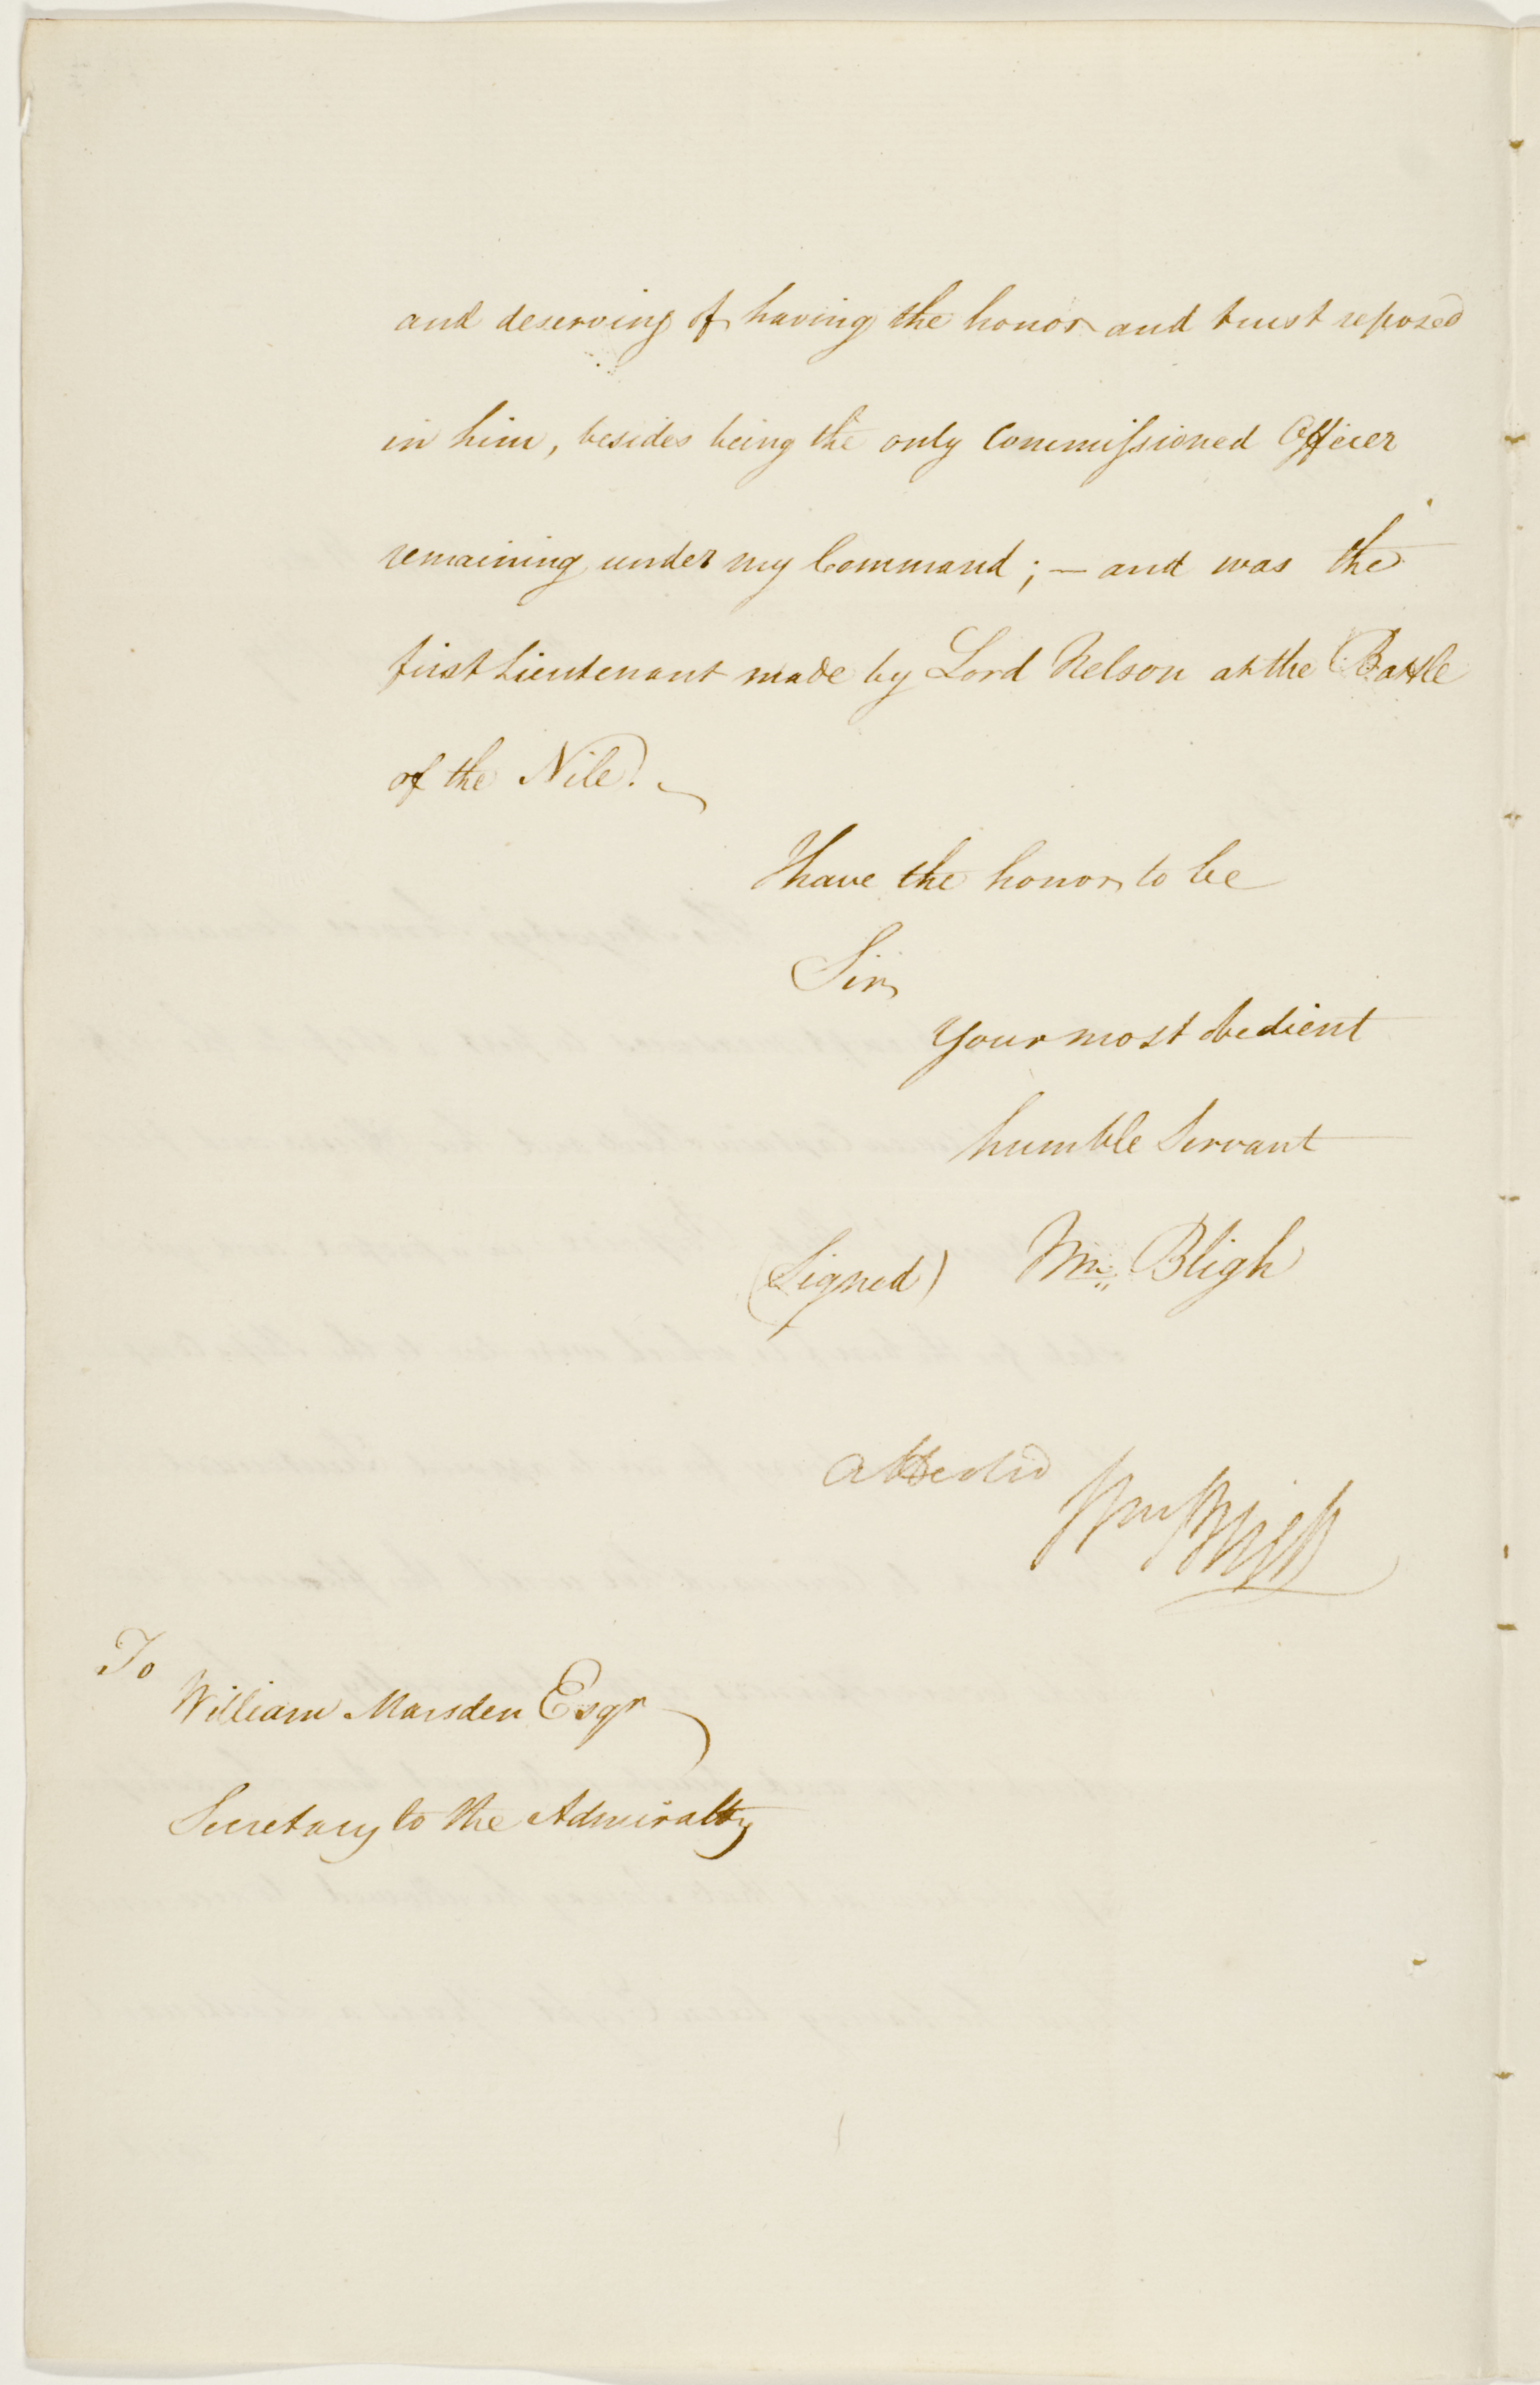 and deserving of having the honor and trust reposed
in him, besides being the only Commissioned Officer
remaining under my Command; — and was the
first Lieutenant made by Lord Nelson at the Battle
of the Nile. —
I have the honor to be
Sir
Your most obedient
humble Servant
(Signed) Wm. Bligh
Attested Wm Bligh
To
William Marsden Esqr
Secretary to the Admiralty